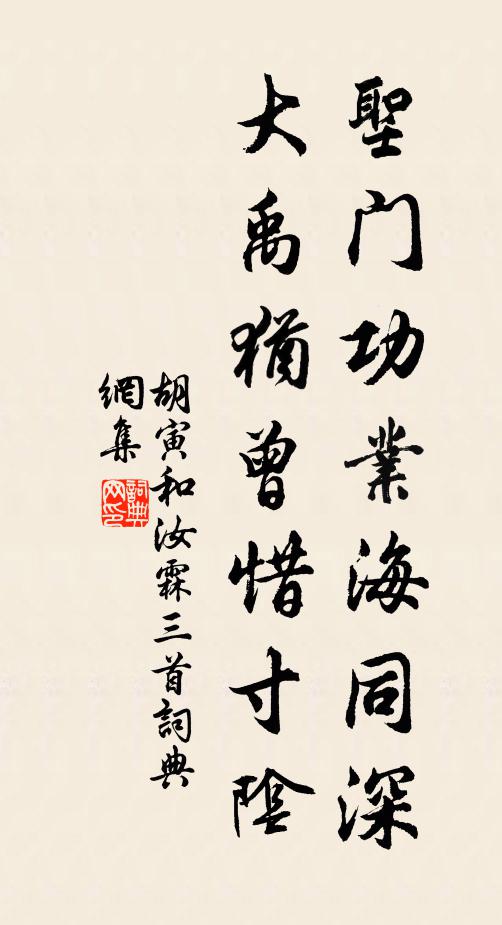 聖门功業海同深
大禹猶曾惜寸陰
胡寅和汝霖三首詞典
網集
詞典
网印